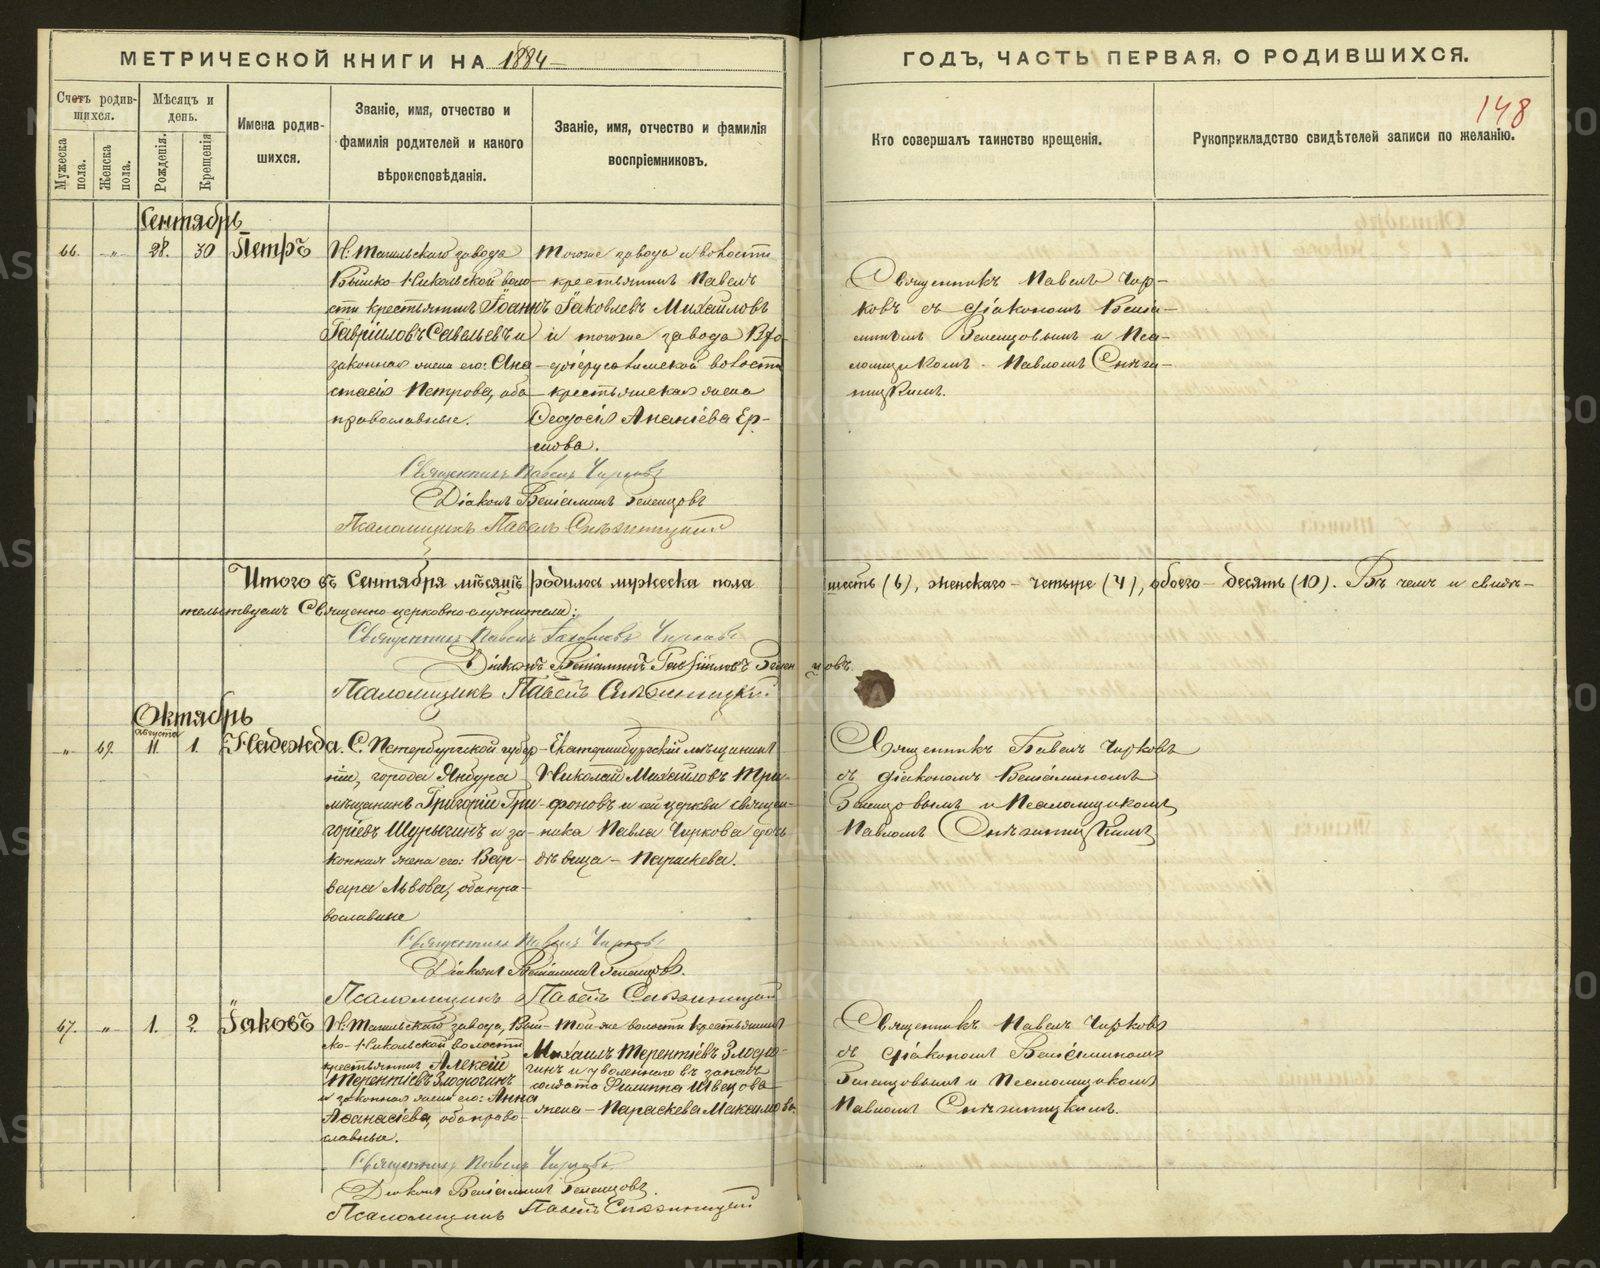 МЕТРИЧЕСКОЙ КНИГИ НА 1884
ГОДЪ, ЧАСТЬ ПЕРВАЯ, О РОДИВШИХСЯ.
148
Счетъ родив-
шихся.
Мужеска пола.
Женска пола.
Мѣсяцъ и
день.
Рожденія.
Крещенія
Имена родив-
шихся.
Званіе, имя, отчество и
фамилія родителей и какого
вѣроисповѣданія.
Званіе, имя, отчество и фамилія
воспріемниковъ.
Кто совершалъ таинство крещенія.
Рукоприкладство свидѣтелей записи по желанію.
Сентябрь
66. „ 28. 30 Петръ
Н. Тагильскаго завода
Выйско-Никольской воло-
сти крестьянинъ Іоаннъ
Гавріиловъ Савельевъ и
законная жена его: Ана-
стасія Петрова, оба
православные.
Тогоже завода и волости
крестьянинъ Павелъ
Іаковлевъ Михайловъ
и тогоже завода Вхо-
доіерусалимской волости
крестьянская жена
Ѳеодосія Ананіева Ер-
мова.
Священникъ Павелъ Чир-
ковъ съ діакономъ Веніа-
миномъ Зеленцовымъ и Пса-
ломщикомъ Павломъ Снѣжи-
ницкимъ.
Священникъ Павелъ Чирковъ
Діаконъ Веніаминъ Зеленцовъ
Псаломщикъ Павелъ Снѣжницкій
Итого въ Сентябрѣ мѣсяцѣ родилось мужеска пола шесть (6), женскаго – четыре (4), обоего – десять (10). Въ чемъ и свидѣ-
тельствуемъ Священно-церковно-служители:
Священникъ Павелъ Іаковлевъ Чирковъ
Діаконъ Веніаминъ Гавріиловъ Зеленцовъ
Псаломщикъ Павелъ Снѣжницкій
Октябрь
Августа
„ 69. 11 1. Надежда.
С. Петербургской губер-
ніи, города Ямбурга
мѣщанинъ Григорій Гри-
горіевъ Шурыгинъ и за-
конная жена его: Вар-
вара Львова, оба пра-
вославные
Екатеринбургскій мѣщанинъ
Николай Михайловъ Три-
фоновъ и сей церкви священ-
ника Павла Чиркова дочь
дѣвица – Параскева.
Священникъ Павелъ Чирковъ
съ діакономъ Веніаминомъ
Зеленцовымъ и Псаломщикомъ
Павломъ Снѣжницкимъ
Священникъ Павелъ Чирковъ
Діаконъ Веніаминъ Зеленцовъ.
Псаломщикъ Павелъ Снѣжницкій
67. „ 1. 2. Іаковъ
Н. Тагильскаго завода, Вый-
ско-Никольской волости
крестьянинъ Алексій
Терентіевъ Злоказинъ
и законная жена его: Анна
Аѳанасіева, оба право-
славные.
Той-же волости крестьянинъ
Михаилъ Терентіевъ
и уволеннаго въ запасъ
солдата Филиппа Швецова
жена – Параскева Максимова.
Священникъ Павелъ Чирковъ
съ діакономъ Веніаминомъ
Зеленцовымъ и Псаломщикомъ
Павломъ Снѣжницкимъ.
Священникъ Павелъ Чирковъ
Діаконъ Веніаминъ Зеленцовъ.
Псаломщикъ Павелъ Снѣжницкій